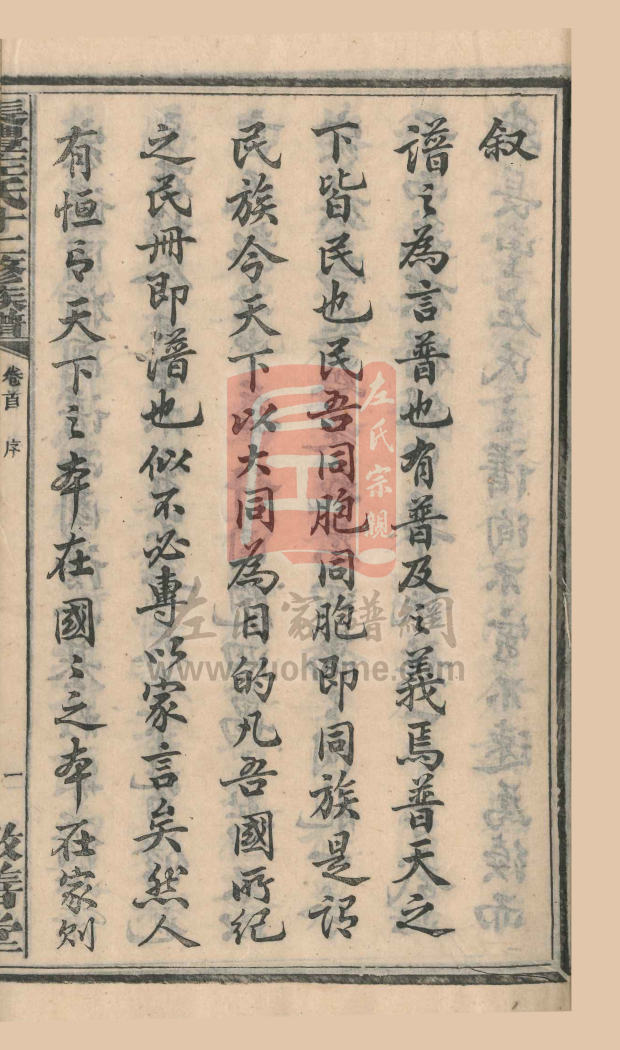 叙
譜之為言普也有普及之義焉普天之
下皆民也民吾同胞同胞即同族是謂
民族今天下以大同為目的凡吾國所紀
之民冊即譜也似不必專以家言矣然人
有恒言天下之本在國〻之本在家則
左氏十二修族譜
卷首 序
一
敦善堂
左氏宗親
左氏家譜網